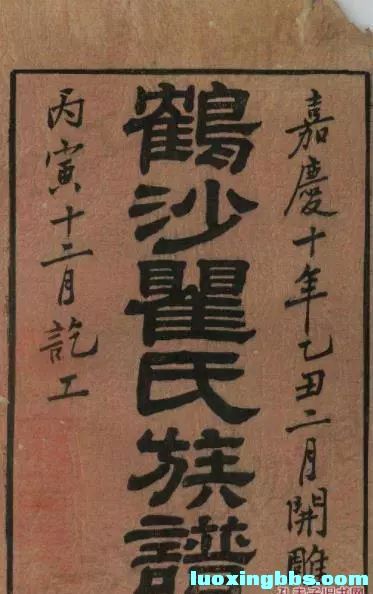 嘉慶十年乙丑二月開雕
鶴沙瞿氏族譜
丙寅十二月訖工
luoxingbbs.com
孔夫子旧书网